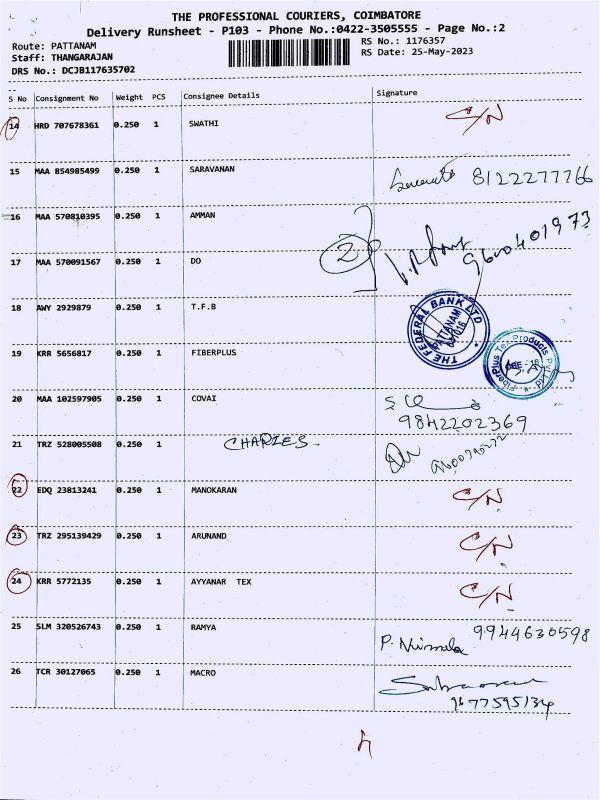 THE PROFESSIONAL COURIERS, COIMBATORE
Delivery Runsheet - P103 - Phone No.:0422-3505555 - Page No.:2
Route: PATTANAM
Staff: THANGARAJAN
DRS No.: DCJB117635702
RS No.: 1176357
RS Date: 25-May-2023
S No Consignment No Weight PCS Consignee Details Signature
14 HRD 707678361 0.250 1 SWATHI C/N
15 MAA 854985499 0.250 1 SARAVANAN 8122277766
16 MAA 570810395 0.250 1 AMMAN
2 9600401973
17 MAA 570091567 0.250 1 DO
18 AWY 2929879 0.250 1 T.F.B
THE FEDERAL BANK LTD
PATTANAM
19 KRR 5656817 0.250 1 FIBERPLUS
FiberPlus Tex Products Pvt Ltd
CBE - 16
20 MAA 102597905 0.250 1 COVAI
9842202369
21 TRZ 528005508 0.250 1 CHARIES
22 EDQ 23813241 0.250 1 MANOKARAN C/N
23 TRZ 295139429 0.250 1 ARUNAND C/N
24 KRR 5772135 0.250 1 AYYANAR TEX C/N
25 SLM 320526743 0.250 1 RAMYA P. Nirmala 9944630598
26 TCR 30127065 0.250 1 MACRO
9677595134